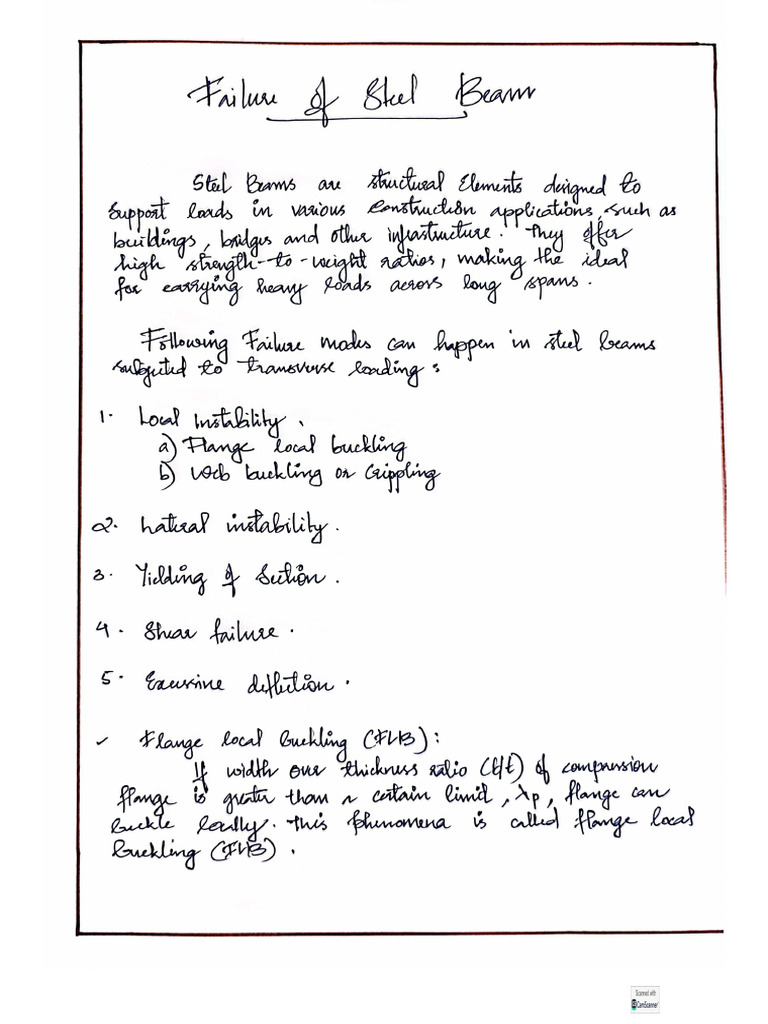 Failure of Steel Beam
Steel Beams are structural Elements designed to
support loads in various construction applications, such as
buildings, bridges and other infrastructure. They offer
high strength-to-weight ratios, making the ideal
for carrying heavy loads across long spans.
Following Failure modes can happen in steel beams
subjected to transverse loading:
1. Local Instability.
a) Flange local buckling
b) Web buckling or Crippling
2. Lateral instability.
3. Yielding of Section.
4. Shear failure.
5. Excessive deflection.
✓ Flange local Buckling (FLB):
If width over thickness ratio (b/t) of compression
flange is greater than a certain limit, λp, flange can
buckle locally. This phenomena is called flange local
buckling (FLB).
Scanned with
CS CamScanner